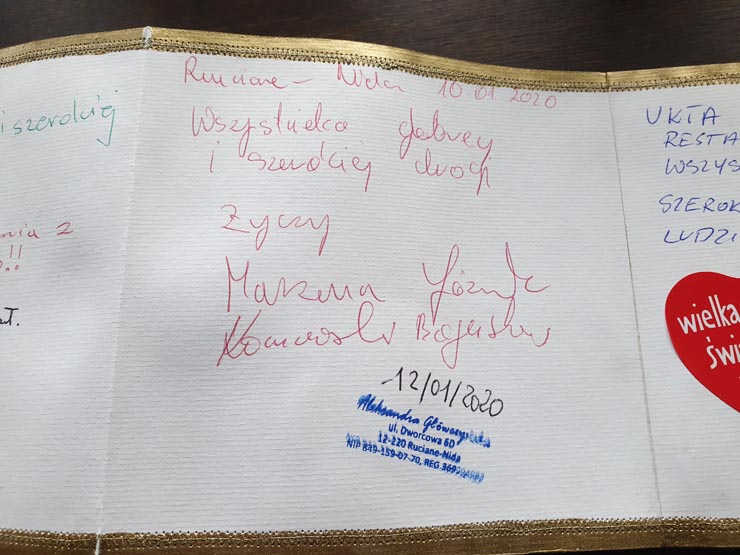 i szerokiej
nia z
!!
Ruciane - Nida 10.01.2020
Wszystkiego dobrego
i szerokiej drogi
życzy
Marzena
Bogusław
12/01/2020
Aleksandra Główczyńska
ul. Dworcowa 6D
12-220 Ruciane-Nida
NIP 849-159-07-70, REG.369
UKTA
RESTA
WSZYS
SZEROK
LUDZI
wielka
świ